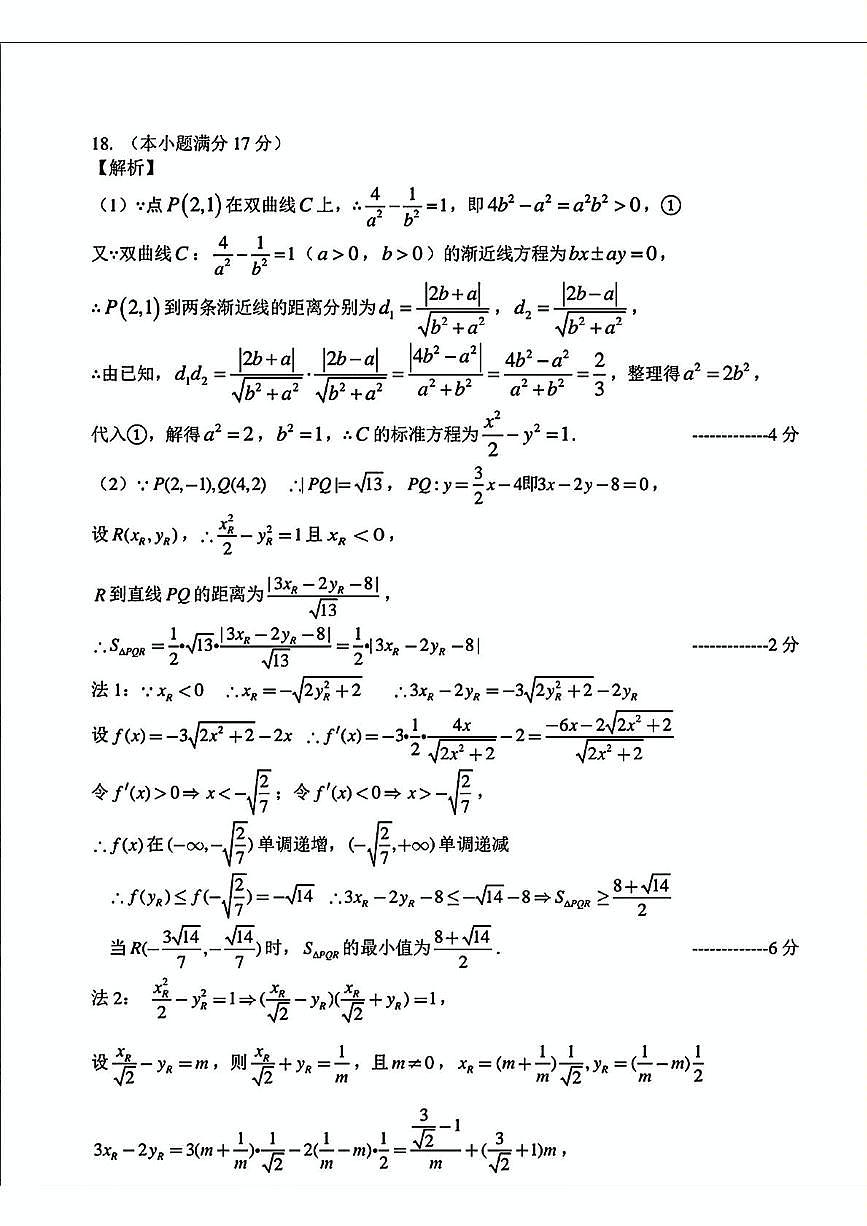 18. （本小题满分 17 分）
【解析】
（1）∵点 P(2,1) 在双曲线 C 上，∴ 4/a² − 1/b² = 1，即 4b² − a² = a²b² > 0，①
又∵双曲线 C： 4/a² − 1/b² = 1（a > 0，b > 0）的渐近线方程为 bx ± ay = 0，
∴ P(2,1) 到两条渐近线的距离分别为 d₁ = |2b+a|/√(b²+a²)，d₂ = |2b−a|/√(b²+a²)，
∴由已知，d₁d₂ = |2b+a|/√(b²+a²) · |2b−a|/√(b²+a²) = |4b²−a²|/(a²+b²) = (4b²−a²)/(a²+b²) = 2/3，整理得 a² = 2b²，
代入①，解得 a² = 2，b² = 1，∴ C 的标准方程为 x²/2 − y² = 1. -------------4 分
（2）∵ P(2,−1),Q(4,2) ∴| PQ |= √13，PQ : y = 3/2 x − 4即3x − 2y − 8 = 0，
设 R(x_R, y_R)，∴ x_R²/2 − y_R² = 1 且 x_R < 0，
R 到直线 PQ 的距离为 |3x_R − 2y_R − 8|/√13，
∴ S_△PQR = 1/2 • √13 • |3x_R − 2y_R − 8|/√13 = 1/2 • |3x_R − 2y_R − 8| -------------2 分
法 1：∵ x_R < 0 ∴ x_R = −√(2y_R² + 2) ∴ 3x_R − 2y_R = −3√(2y_R² + 2) − 2y_R
设 f(x) = −3√(2x² + 2) − 2x ∴ f′(x) = −3 • 1/2 • 4x/√(2x² + 2) − 2 = (−6x − 2√(2x² + 2))/√(2x² + 2)
令 f′(x) > 0 ⇒ x < −√(2/7)；令 f′(x) < 0 ⇒ x > −√(2/7)，
∴ f(x) 在 (−∞, −√(2/7)) 单调递增，(−√(2/7), +∞) 单调递减
∴ f(y_R) ≤ f(−√(2/7)) = −√14 ∴ 3x_R − 2y_R − 8 ≤ −√14 − 8 ⇒ S_△PQR ≥ (8+√14)/2
当 R(−3√14/7, −√14/7) 时，S_△PQR 的最小值为 (8+√14)/2 . -------------6 分
法 2： x_R²/2 − y_R² = 1 ⇒ (x_R/√2 − y_R)(x_R/√2 + y_R) = 1，
设 x_R/√2 − y_R = m，则 x_R/√2 + y_R = 1/m，且 m ≠ 0，x_R = (m + 1/m) 1/√2, y_R = (1/m − m) 1/2
3x_R − 2y_R = 3(m + 1/m) • 1/√2 − 2(1/m − m) • 1/2 = (3/√2 − 1)/m + (3/√2 + 1)m，